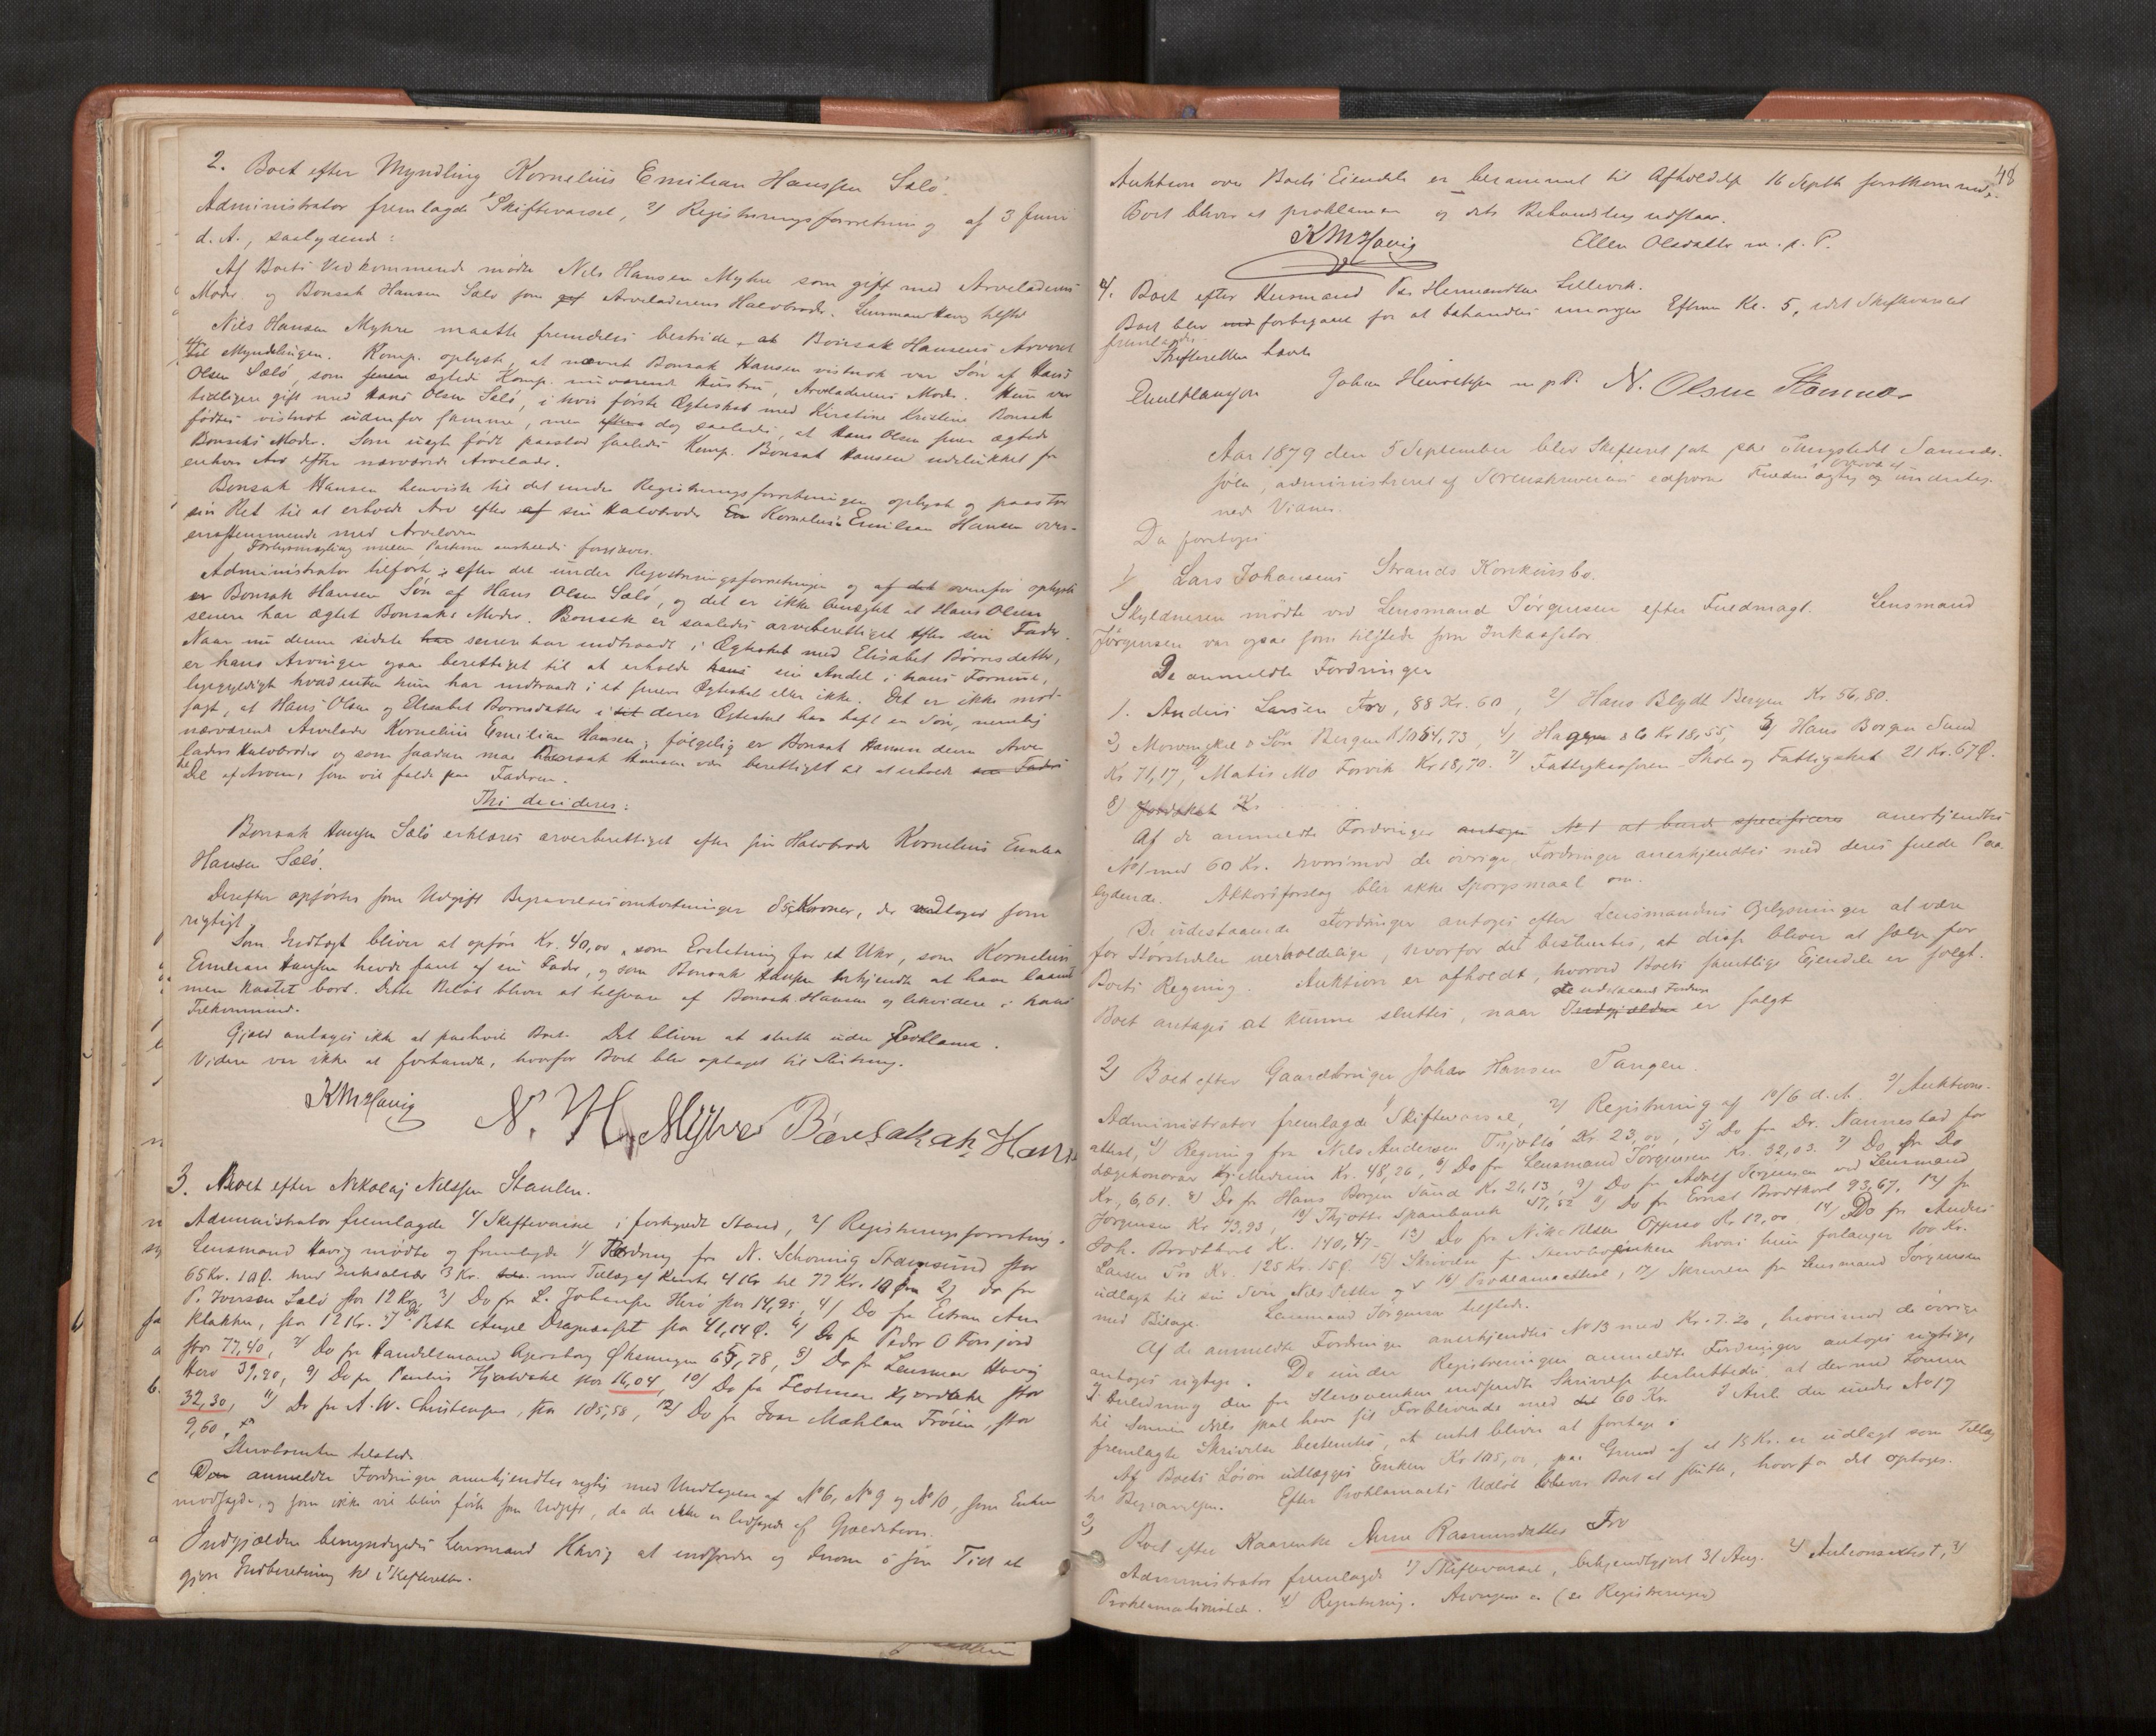 2. Boet efter Myndling Kornelius Emilian Hanssen Sælø.
Administrator fremlagde 1/ Skiftevarsel, 2/ Registreringsforretning af 3 Juni
d. A., saalydende:
Af Boets Vedkommende mødte Nils Hansen Myhre som gift med Arveladerens
Moder og Bonsak Hansen Sælø som Arveladerens Halvbroder. Lensmand Havig tilstede
Nils Hansen Myhre maatte fremdeles bestride, at Bonsak Hansens Arveret
efter Myndlingen. Komp. oplyste, at nævnte Bonsak Hansen vistnok var Søn af Hans
Olsen Sælø, som senere ægtede Komp. nuværende Hustru, Arveladerens Moder. Hun var
tidligere gift med Hans Olsen Sælø, i hvis første Ægteskab med Kirstine Kristine Bonsak
fødtes vistnok udenfor samme, men dog saaledes, at Hans Olsen senere ægtede
Bonsaks Moder. Som uægte født paastod saaledes Komp. Bonsak Hansen udelukket fra
enhver Arv efter nærværende Arvelader.
Bonsak Hansen henviste til det under Registreringsforretningen oplyste og paastod
sin Ret til at erholde Arv efter sin Halvbroder Kornelius Emilian Hansen overens-
stemmende med Arveloven
Forligsmægling mellem Parterne anstilledes forgjæves.
Administrator tilførte: efter det under Registreringsforretningen og ovenfor oplyste
er Bonsak Hansen Søn af Hans Olsen Sælø, og det er ikke benægtet at Hans Olsen
senere har ægtet Bonsaks Moder. Bonsak er saaledes arveberettiget efter sin Fader.
Naar nu denne sidste senere har indtraadt i Ægteskab med Elisabet Børresdatter,
er hans Arvinger ogsaa berettiget til at erholde sin Andel i hans Formue,
ligegyldigt hvad enten hun har indtraadt i et senere Ægteskab eller ikke. Det er ikke mod-
sagt, at Hans Olsen og Elisabet Børresdatter i deres Ægteskab har havt en Søn, nemlig
nærværende Arvelader Kornelius Emilian Hansen; følgelig er Bonsak Hansen denne Arve-
laders Halvbroder og som saadan maa Bonsak Hansen være berettiget til at erholde
Del af Arven, som vil falde paa Faderen.
Thi decideres:
Bonsak Hansen Sælø erklæres arveberettiget efter sin Halvbroder Kornelius Emilian
Hansen Sælø.
Derefter opførtes som Udgift Begravelsesomkostninger 85 Kroner, der vedtoges som
rigtigt.
Som Indtægt bliver at opføre Kr. 40,00 som Erstatning for et Uhr, som Kornelius
Emilian Hansen havde faaet af sin Fader, og som Bonsak Hansen erkjendte at have laant
men kastet bort. Dette Beløb bliver at tilsvare af Bonsak Hansen og likvidere i hans
Tilkommende.
Gjæld antages ikke at paahvile Boet. Det bliver at slutte uden Proklama.
Videre var ikke at forhandle, hvorfor Boet blev optaget til Slutning.
KMHavig N. H. Myhre Bonsakak Hans
3. Boet efter Nikolaj Nilssen Staulen.
Administrator fremlagde 1/ Skiftevarsel i forkyndt Stand, 2/ Registreringsforretning.
Lensmand Havig mødte og fremlagde 1/ Fordring fra N. Schoning Stamsund stor
65 Kr. 10 Ø. med Inkasalær 3 Kr. med Tillæg af Rente 4 Kr til 77 Kr. 10 Øre 2) do fra
P. Iversen Sælø stor 12 Kr, 3/ Do fra L. Johansen Herø stor 14,95, 4/ Do fra
Klakken, stor 12 Kr. 5/ Do Dragnæsset stor 41,14 Ø. 6/ Do fra Peder O Forsjord
stor 77,40, 7/ Do fra Handelsmand Agersborg Øksningen 65,78, 8) Do fra Lensmand Havig
Herø 39,20, 9) Do fra Paulus Hjartdahl stor 16,04, 10) Do fra stor
32,30, 11) Do fra A. W. Christensen, stor 185,58, 12) Do fra Ivar Mæhlan Frøien, stor
9,60.
Stervboenken tilstede.
De anmeldte Fordringer anerkjendtes rigtig med Undtagelse af No 6, No 9 og No 10, som Enken
modsagde, og som ikke vil blive ført som Udgift, da de ikke er ledsaget af Gjældsbevis.
Indgjælden bemyndigedes Lensmand Havig at indfordre og derom i sin Tid at
gjøre Indberetning til Skifteretten.
48
Auktion over Boets Eiendele er berammet til Afholdelse 16 Septb førstkommende.
Boet bliver at proklamere og dets Behandling udstaar.
KMHavig Ellen Olsdatter m. p. P.
4. Boet efter Husmand Per Hermandsen Lillevik.
Boet blev forbigaaet for at behandles imorgen Efterm Kl. 5, idet Skiftevarsel
fremlagdes.
Skifteretten hævet
Johan Henriksen m p P. N. Olsen Komnæs
Aar 1879 den 5 September blev Skifteret sat paa Thingstedet Sannes-
sjøen, administreret af Sorenskriverens edsvorne Fuldmægtig i Overvær af undertegnede
Vidner.
Da foretoges
1/ Lars Johansens Strands Konkursbo.
Skyldneren mødte ved Lensmand Jørgensen efter Fuldmagt. Lensmand
Jørgensen var ogsaa som tilstede som Inkassator.
De anmeldte Fordringer
1. Anders Larsen Tro, 88 Kr. 60, 2/ Hans Blydt Bergen Kr 56,80.
3) Mowinckel & Søn Bergen Kr 1064,73, 4/ Hagen & Co Kr 18,55, 5/ Hans Borgen Sund
Kr 71,17, 6/ Matis Mo Forvik Kr 18,70. 7/ Fattigkassereren Skole og Fattigskat 21 Kr. 67 Ø.
8) Jordskat Kr
Af de anmeldte Fordringer antoges No 1 at burde specificeres anerkjendtes
No 1 med 60 Kr. hvorimod de øvrige Fordringer anerkjendtes med deres fulde Paa-
lydende. Akkordforslag blev ikke Spørgsmaal om.
De udestaaende Fordringer antoges efter Lensmandens Oplysninger at være
for Størstedelen uerholdelige, hvorfor det bestemtes, at disse bliver at sælge for
Boets Regning. Auktion er afholdt, hvorved Boets samtlige Eiendele er solgt.
Boet antages at kunne sluttes, naar de udestaaende Fordringer er solgt
2) Boet efter Gaardbruger Johan Hansen Tangen.
Administrator fremlagde 1/ Skiftevarsel, 2/ Registrering af 10/6 d. A. 3/ Auktions-
attest, 4/ Regning fra Nils Andersen Kr. 23,00, 5/ Do fra Dr. Nannestad for
Lægehonorar Medicin Kr. 48,26, 6/ Do fra Lensmand Jørgensen Kr. 32,03. 7/ Do fra Do
Kr, 6,61. 8/ Do fra Hans Borgen Sund Kr 21,13, 9/ Do fra Adolf Jørgensen ved Lensmand
Jørgensen Kr 73,93, 10/ Thjøtte Sparebank 47,52 11/ Do fra Ernst Brodtkorb 93,67. 12/ fra
Joh. Brodtkorb Kr. 140,47. 13/ Do fra Nils Olsen Kr 12,00 14/ Do fra Anders
Larsen Tro Kr. 125 Kr. 15 Ø. 15/ Skrivelse fra Stervboenken hvori hun forlanger 100 Kr.
udlagt til sin Søn Nils Petter og 16/ Proklamaattest, 17/ Skrivelse fra Lensmand Jørgensen
med Bilage. Lensmand Jørgensen tilstede.
Af de anmeldte Fordringer anerkjendtes No 13 med Kr. 7.20, hvorimod de øvrige
antoges rigtige. De under Registreringen anmeldte Fordringer antoges rigtige,
I Anledning den fra Stervboenken indsendte Skrivelse besluttedes at der ved Loven
til Sønnen Nils skal have sit Forblivende med 60 Kr. I Anl. den under No 17
fremlagte Skrivelse bestemtes, at intet bliver at foretage i
Af Boets Løsøre udlægges Enken Kr 105,00, paa Grund af at 15 Kr. er udlagt som Tillæg
til Begravelsen. Efter Proklamaets Udløb bliver Boet at slutte, hvorfor det optoges.
3/
Boet efter Kaarenke Anne Rasmusdatter Tro
Administrator fremlagde 1/ Skiftevarsel, bekjendtgjort 31 Aug. 2/ Auktionsattest, 3/
Proklamationsattest. 4/ Registrering. Arvinger er (se Registreringen)